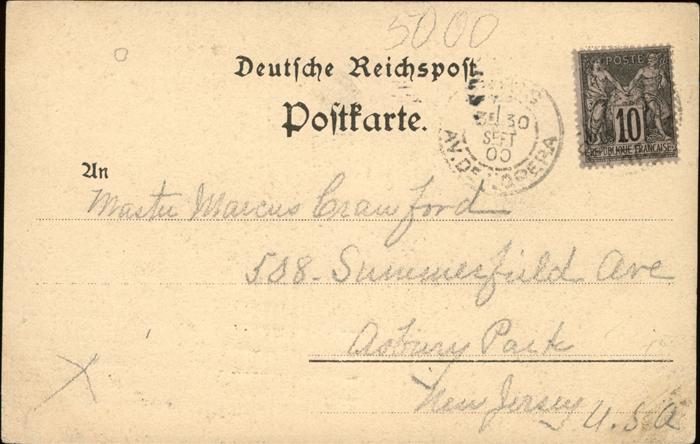 5000
Deutsche Reichspost
Postkarte.
POSTE
10
REPUBLIQUE FRANÇAISE
30
SEPT
00
AV. DE L'OPERA
An
Master Marcus Crawford
508 Summerfield Ave
Asbury Park
New Jersey U.S.A